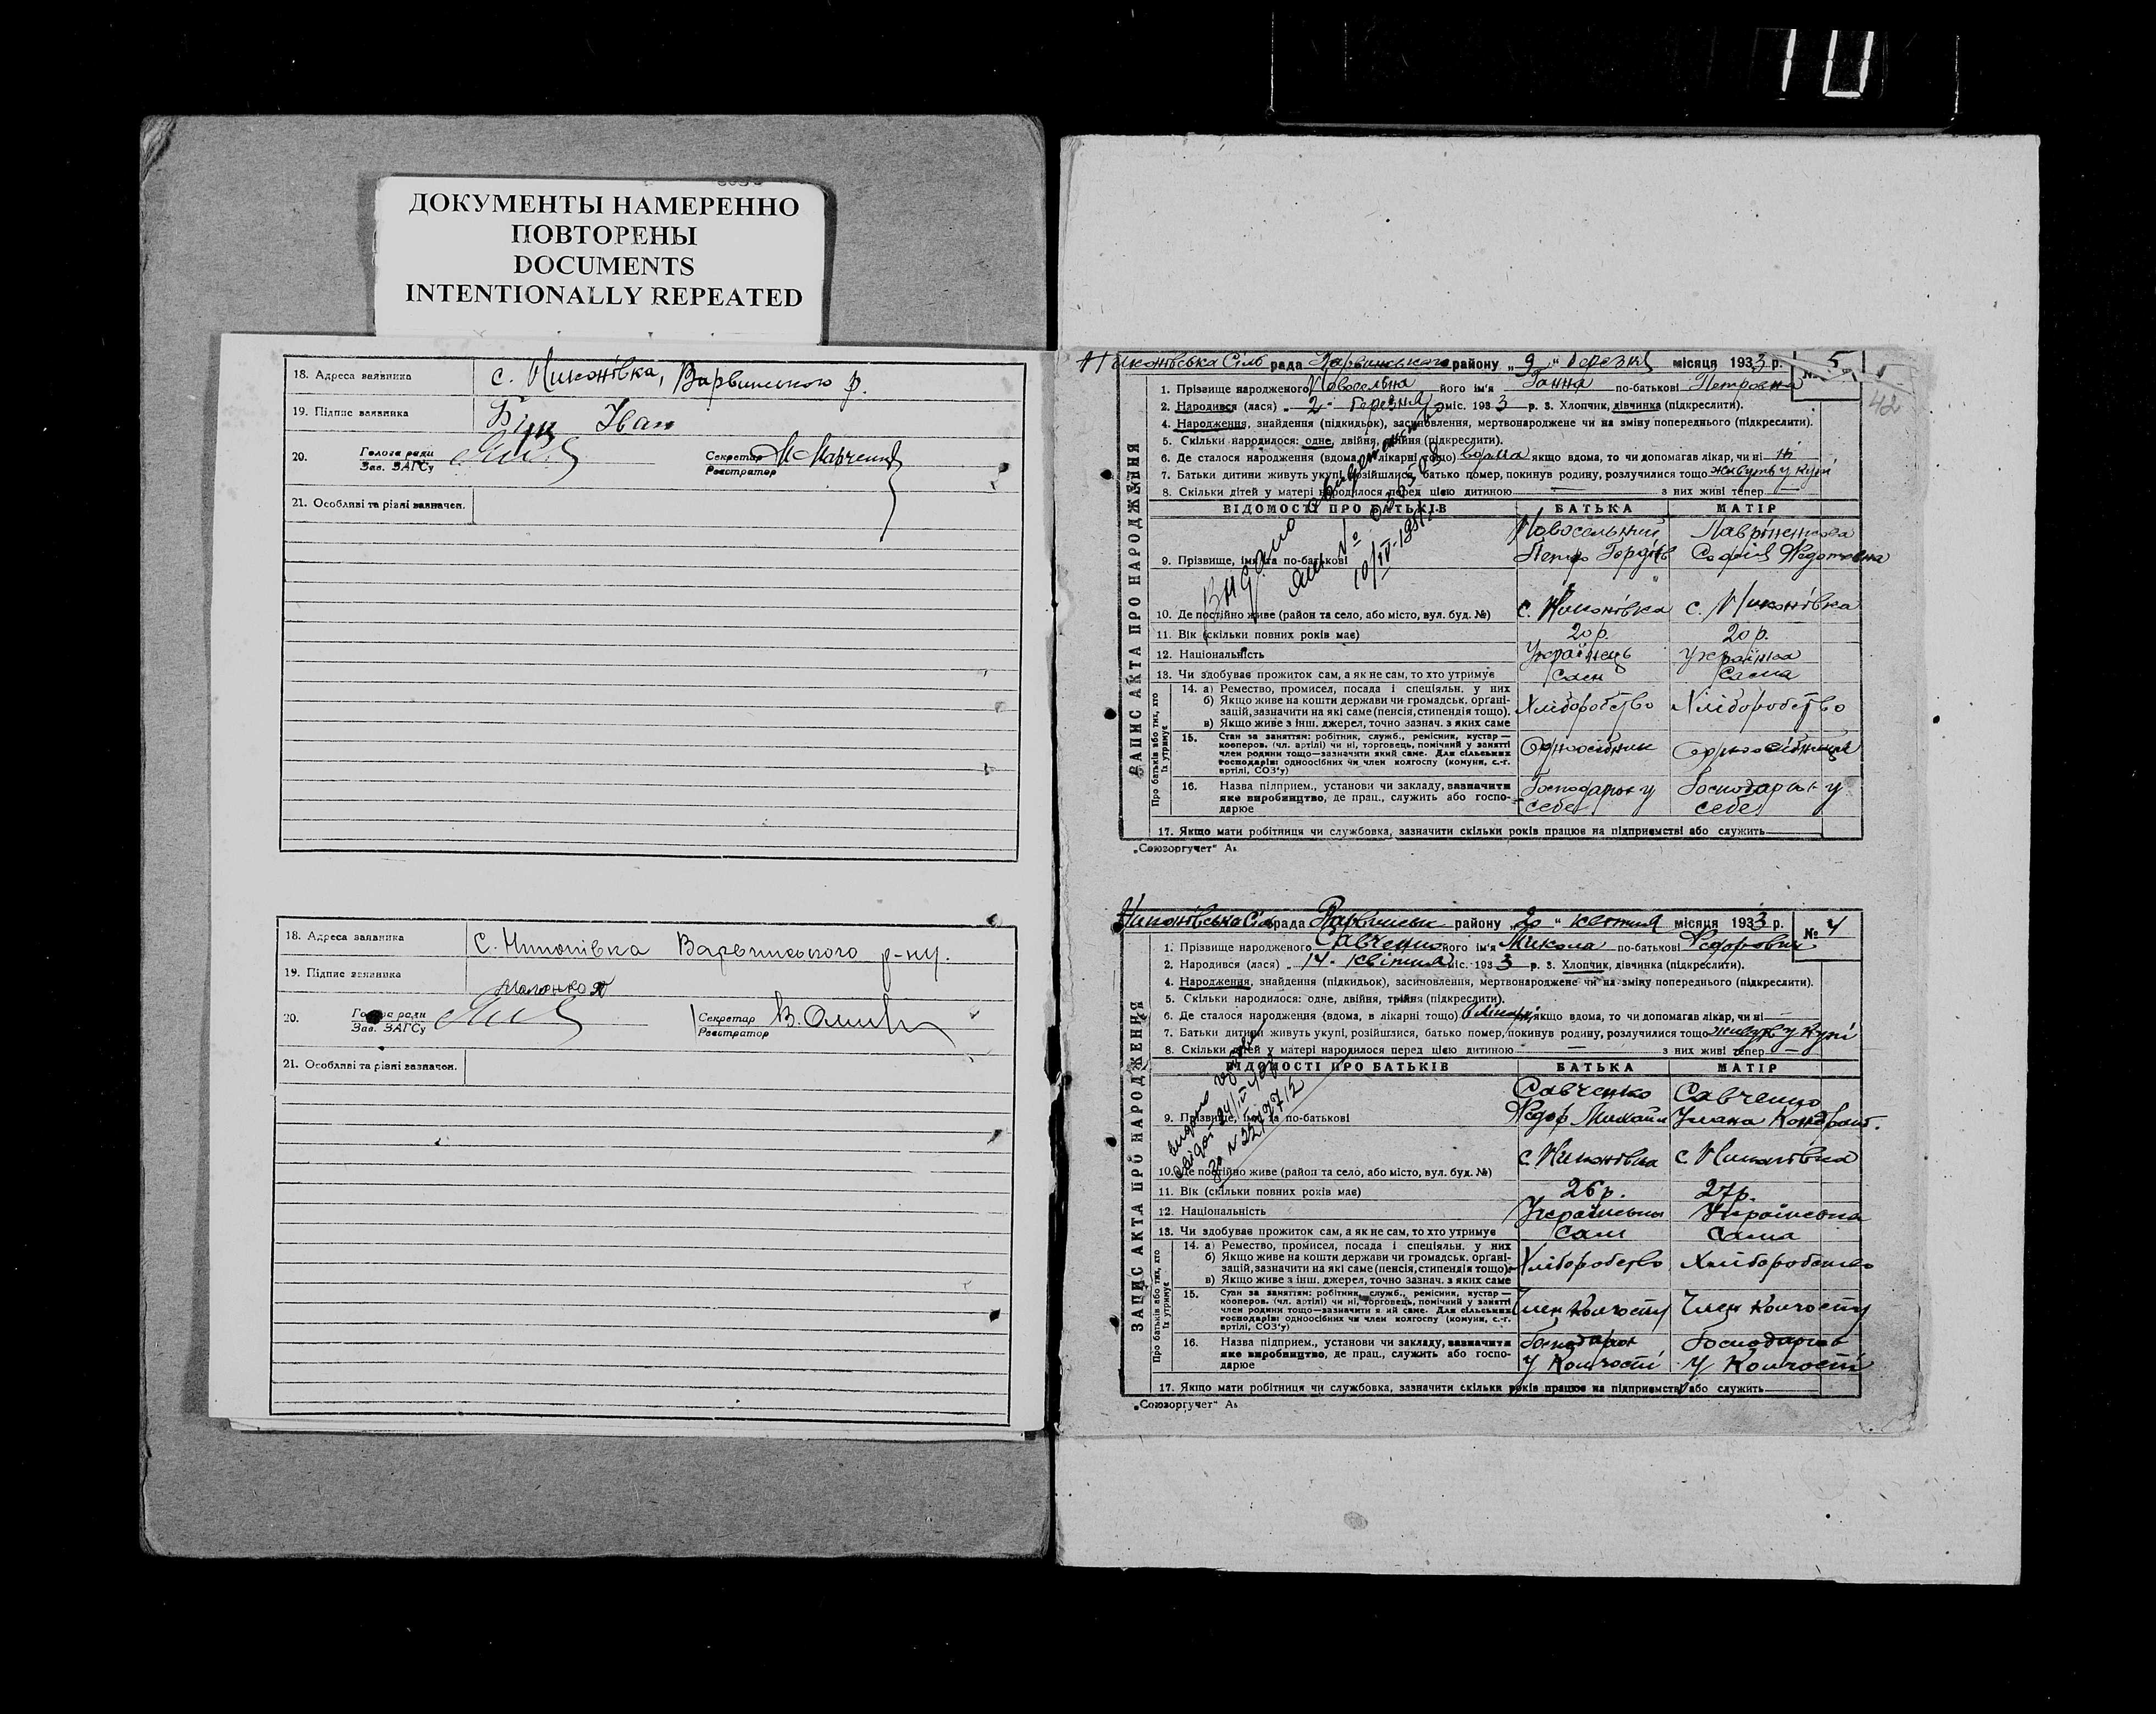 10
ДОКУМЕНТЫ НАМЕРЕННО
ПОВТОРЕНЫ
DOCUMENTS
INTENTIONALLY REPEATED
18. Адреса заявника с. Никонівка, Варвинського р.
19. Підпис заявника Іван
20. Голова ради Зав. ЗАГСу Секретар Реєстратор
21. Особливі та різні зазначен.
18. Адреса заявника С. Никонівка Варвинського р-ну.
19. Підпис заявника
20. Голова ради Зав. ЗАГСу Секретар Реєстратор
21. Особливі та різні зазначен.
42
ЗАПИС АКТА ПРО НАРОДЖЕННЯ
Никонівська Сіль рада Варвинського району „9" березня місяця 1933 р. № 5
1. Прізвище народженого Новосельна його ім'я Ганна по-батькові Петровна
2. Народився (лася) „ 2 - березня міс. 1933 р. 3. Хлопчик, дівчинка (підкреслити).
4. Народження, знайдення (підкидьок), засиновлення, мертвонароджене чи на зміну попереднього (підкреслити).
5. Скільки народилося: одне, двійня, трійня (підкреслити).
6. Де сталося народження (вдома, в лікарні тощо) вдома якщо вдома, то чи допомагав лікар, чи ні ні
7. Батьки дитини живуть укупі, розійшлися, батько помер, покинув родину, розлучилися тощо живуть у купі
8. Скільки дітей у матері народилося перед цією дитиною — з них живі тепер —
ВІДОМОСТІ ПРО БАТЬКІВ БАТЬКА МАТІР
Новосельний Лавріненкова
9. Прізвище, ім'я та по-батькові Петро Гордіїв Софія Федотовна
Видано
№
10/IV-195
10. Де постійно живе (район та село, або місто, вул. буд. №) с. Никонівка с. Никонівка
11. Вік (скільки повних років має) 20 р. 20 р.
12. Національність Українець Українка
13. Чи здобуває прожиток сам, а як не сам, то хто утримує Сам Сама
Про батьків або тих, хто їх утримує
14. а) Ремество, промисел, посада і спеціяльн. у них
б) Якщо живе на кошти держави чи громадськ. орґані-
зацій, зазначити на які саме (пенсія, стипендія тощо). Хліборобство Хліборобство
в) Якщо живе з інш. джерел, точно зазнач. з яких саме
15. Стан за заняттям: робітник, служб., ремісник, кустар—
кооперов. (чл. артілі) чи ні, торговець, помічний у занятті
член родини тощо—зазначити який саме. Для сільських Одноосібник Одноосібниця
господарів: одноосібних чи член колгоспу (комуни, с.-г.
артілі, СОЗ'у)
16. Назва підприєм., установи чи закладу, зазначити Господарює у Господарює у
яке виробництво, де прац., служить або госпо- себе себе
дарює
17. Якщо мати робітниця чи службовка, зазначити скільки років працює на підприємстві або служить —
„Союзоргучет"
ЗАПИС АКТА ПРО НАРОДЖЕННЯ
Никонівська Сіл рада Варвинськ району „20" квітня місяця 1933 р. № 4
1. Прізвище народженого Савченко його ім'я Микола по-батькові Федорович
2. Народився (лася) „ 14 - квітня міс. 1933 р. 3. Хлопчик, дівчинка (підкреслити).
4. Народження, знайдення (підкидьок), засиновлення, мертвонароджене чи на зміну попереднього (підкреслити).
5. Скільки народилося: одне, двійня, трійня (підкреслити).
6. Де сталося народження (вдома, в лікарні тощо) в лікарні, якщо вдома, то чи допомагав лікар, чи ні —
7. Батьки дитини живуть укупі, розійшлися, батько помер, покинув родину, розлучилися тощо живуть у купі
8. Скільки дітей у матері народилося перед цією дитиною — з них живі тепер —
ВІДОМОСТІ ПРО БАТЬКІВ БАТЬКА МАТІР
Савченко Савченко
9. Прізвище, ім'я та по-батькові Федор Михайл Уляна Кондрат.
10. Де постійно живе (район та село, або місто, вул. буд. №) с. Никонівка с. Никонівка
11. Вік (скільки повних років має) 26 р. 27 р.
12. Національність Українська Українська
13. Чи здобуває прожиток сам, а як не сам, то хто утримує Сам Сама
Про батьків або тих, хто їх утримує
14. а) Ремество, промисел, посада і спеціяльн. у них
б) Якщо живе на кошти держави чи громадськ. орґані-
зацій, зазначити на які саме (пенсія, стипендія тощо). Хліборобство Хліборобство
в) Якщо живе з інш. джерел, точно зазнач. з яких саме
15. Стан за заняттям: робітник, служб., ремісник, кустар—
кооперов. (чл. артілі) чи ні, торговець, помічний у занятті
член родини тощо—зазначити який саме. Для сільських Член колгоспу Член колгоспу
господарів: одноосібних чи член колгоспу (комуни, с.-г.
артілі, СОЗ'у)
16. Назва підприєм., установи чи закладу, зазначити Господарює Господарює
яке виробництво, де прац., служить або госпо- у колгоспі у колгоспі
дарює
17. Якщо мати робітниця чи службовка, зазначити скільки років працює на підприємстві або служить —
„Союзоргучет"